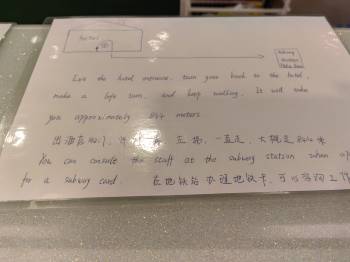 hotel
Subway
Station
Exit the hotel entrance, turn your back to the hotel,
make a left turn, and keep walking. It will take
you approximately 844 meters
出酒店门, 左拐, 一直走, 大概是844米
You can consult the staff at the subway station when
for a subway card. 在地铁站办理地铁卡, 可以咨询工作